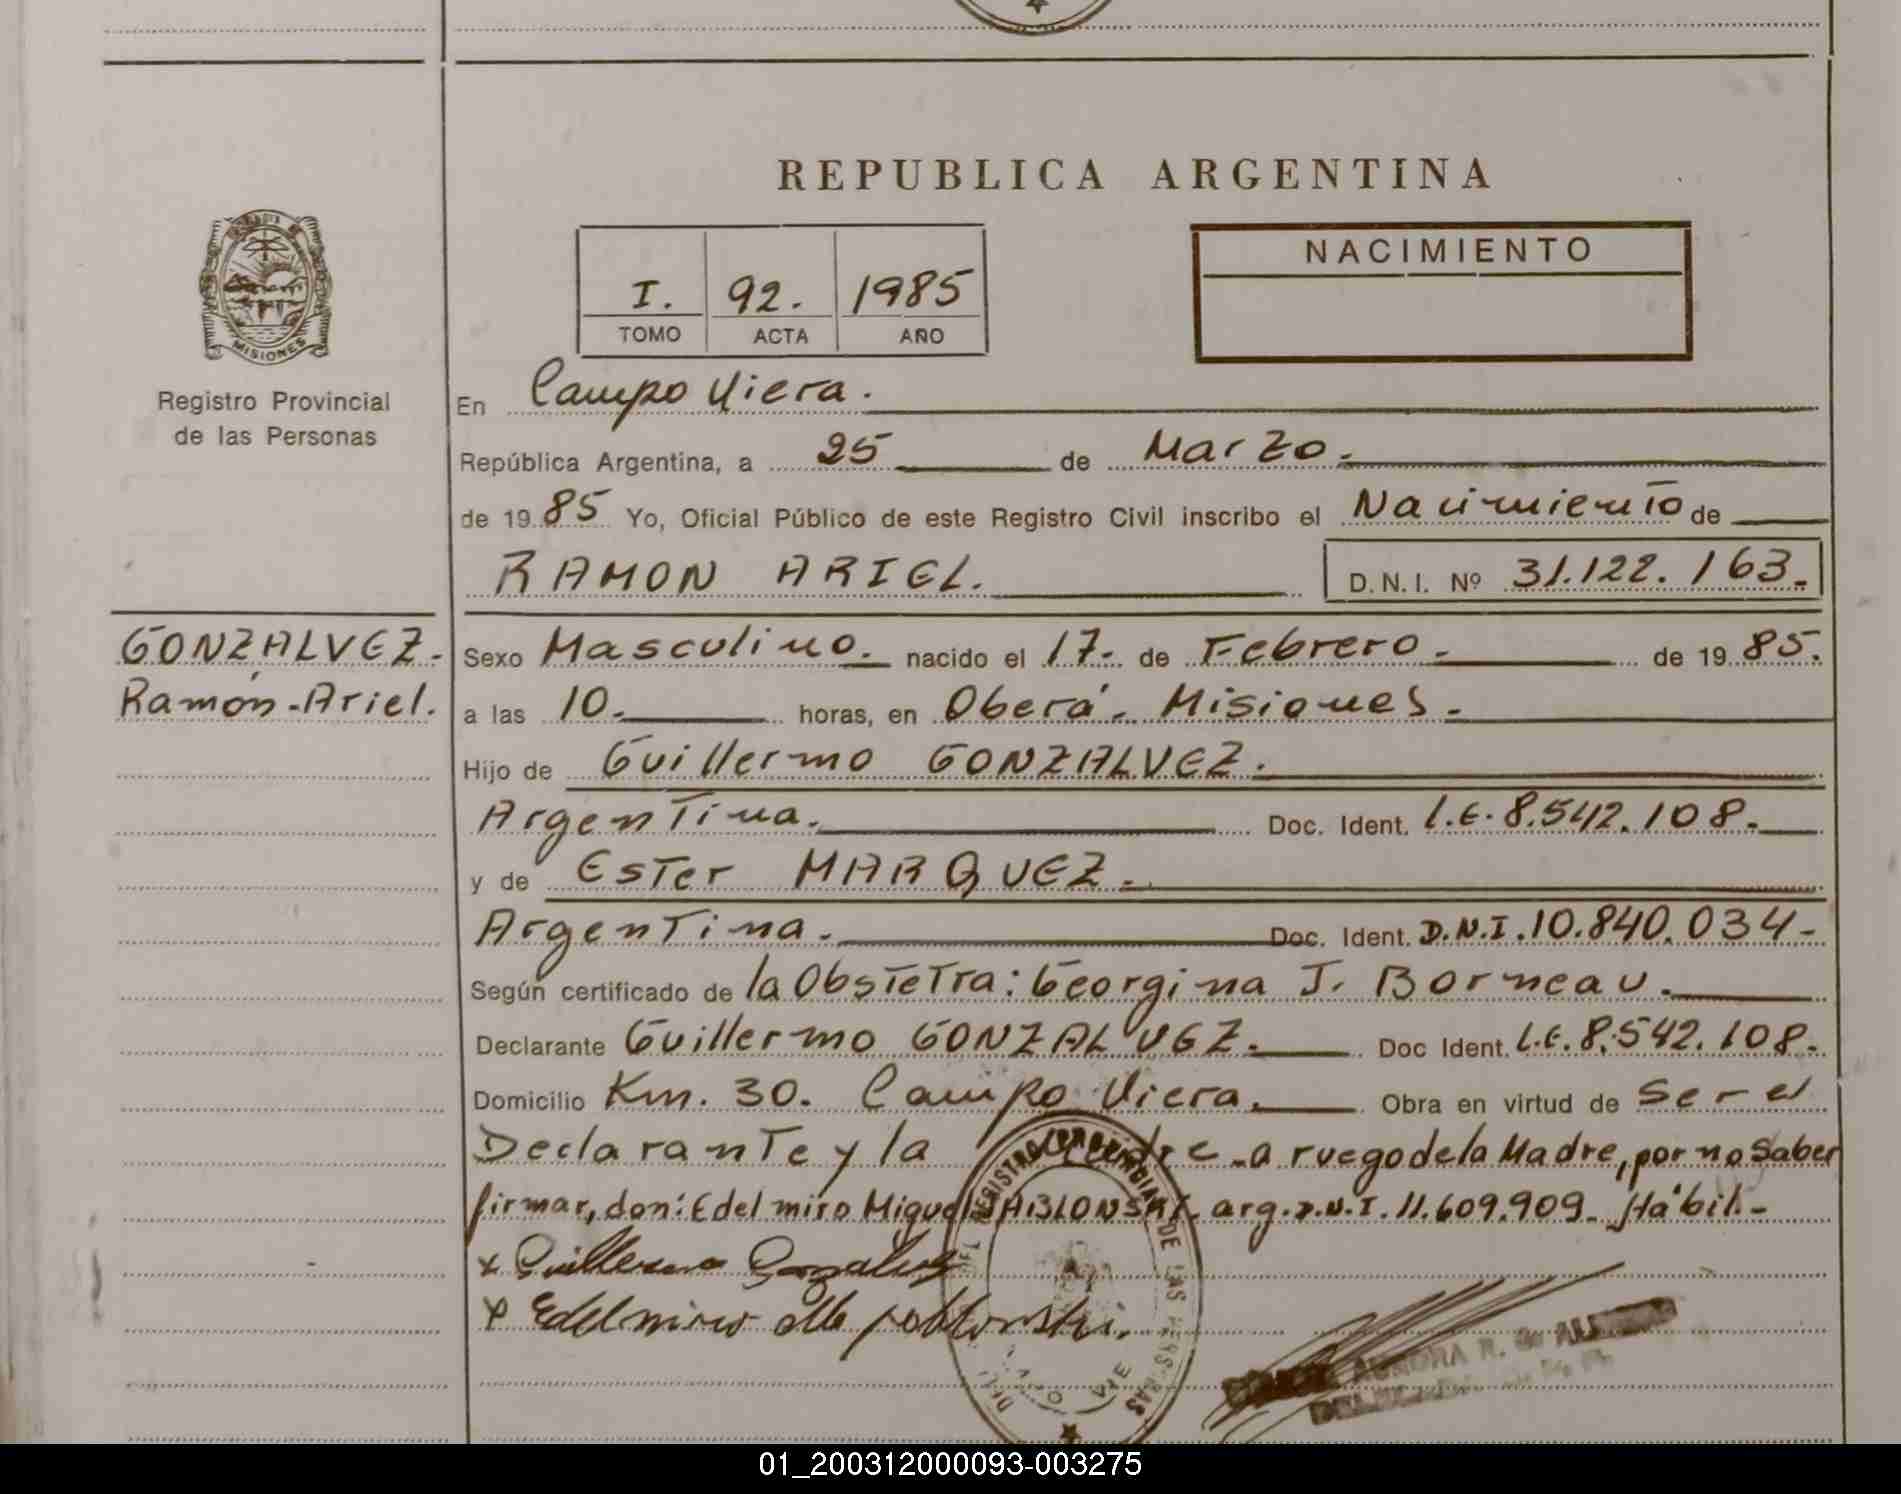 REPUBLICA ARGENTINA
NACIMIENTO
I. 92. 1985
TOMO ACTA AÑO
MISIONES
Registro Provincial
de las Personas
En Campo Viera.
República Argentina, a 25 de Marzo.
de 1985 Yo, Oficial Público de este Registro Civil inscribo el Nacimiento de
RAMON ARIEL. D.N.I. Nº 31.122.163.
GONZALVEZ.
Ramón-Ariel.
Sexo Masculino. nacido el 17. de Febrero. de 1985.
a las 10. horas, en Oberá. Misiones.
Hijo de Guillermo GONZALVEZ.
Argentina. Doc. Ident. L.E. 8.542.108.
y de Ester MARQUEZ.
Argentina. Doc. Ident. D.N.I. 10.840.034-
Según certificado de la Obstetra: Georgina J. Borneau.
Declarante Guillermo GONZALVEZ. Doc Ident. L.E. 8.542.108.
Domicilio Km. 30. Campo Viera. Obra en virtud de Ser el
Declarante y la Madre a ruego de la Madre, por no Saber
firmar, don: Edelmiro Miguel arg. D.N.I. 11.609.909- Hábil-
x Guillermo Gonzalvez
x Edelmiro
AURORA R. G.
01_200312000093-003275